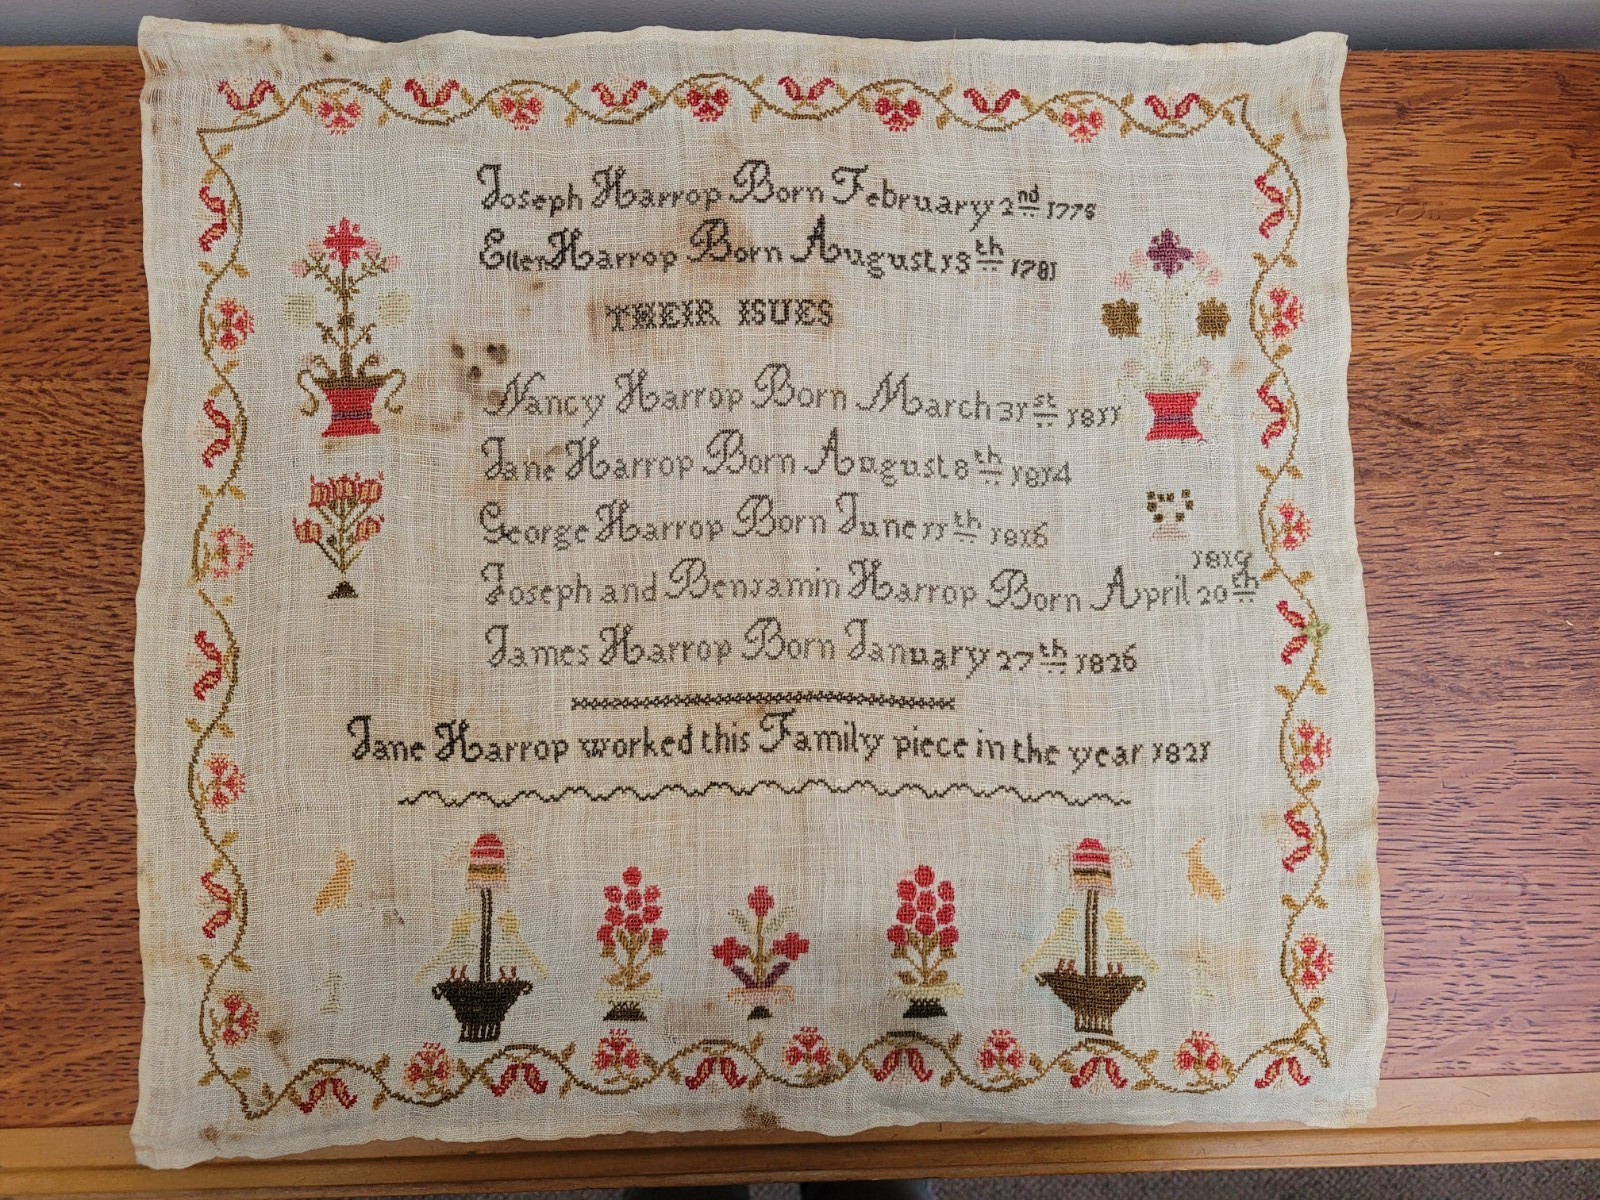 Joseph Harrop Born February 2nd 1776
Ellen Harrop Born August 13th 1781
THEIR ISUES
Nancy Harrop Born March 31st 1811
Jane Harrop Born August 8th 1814
George Harrop Born June 11th 1816
1819
Joseph and Benjamin Harrop Born April 20th
James Harrop Born January 27th 1826
Jane Harrop worked this Family piece in the year 1821